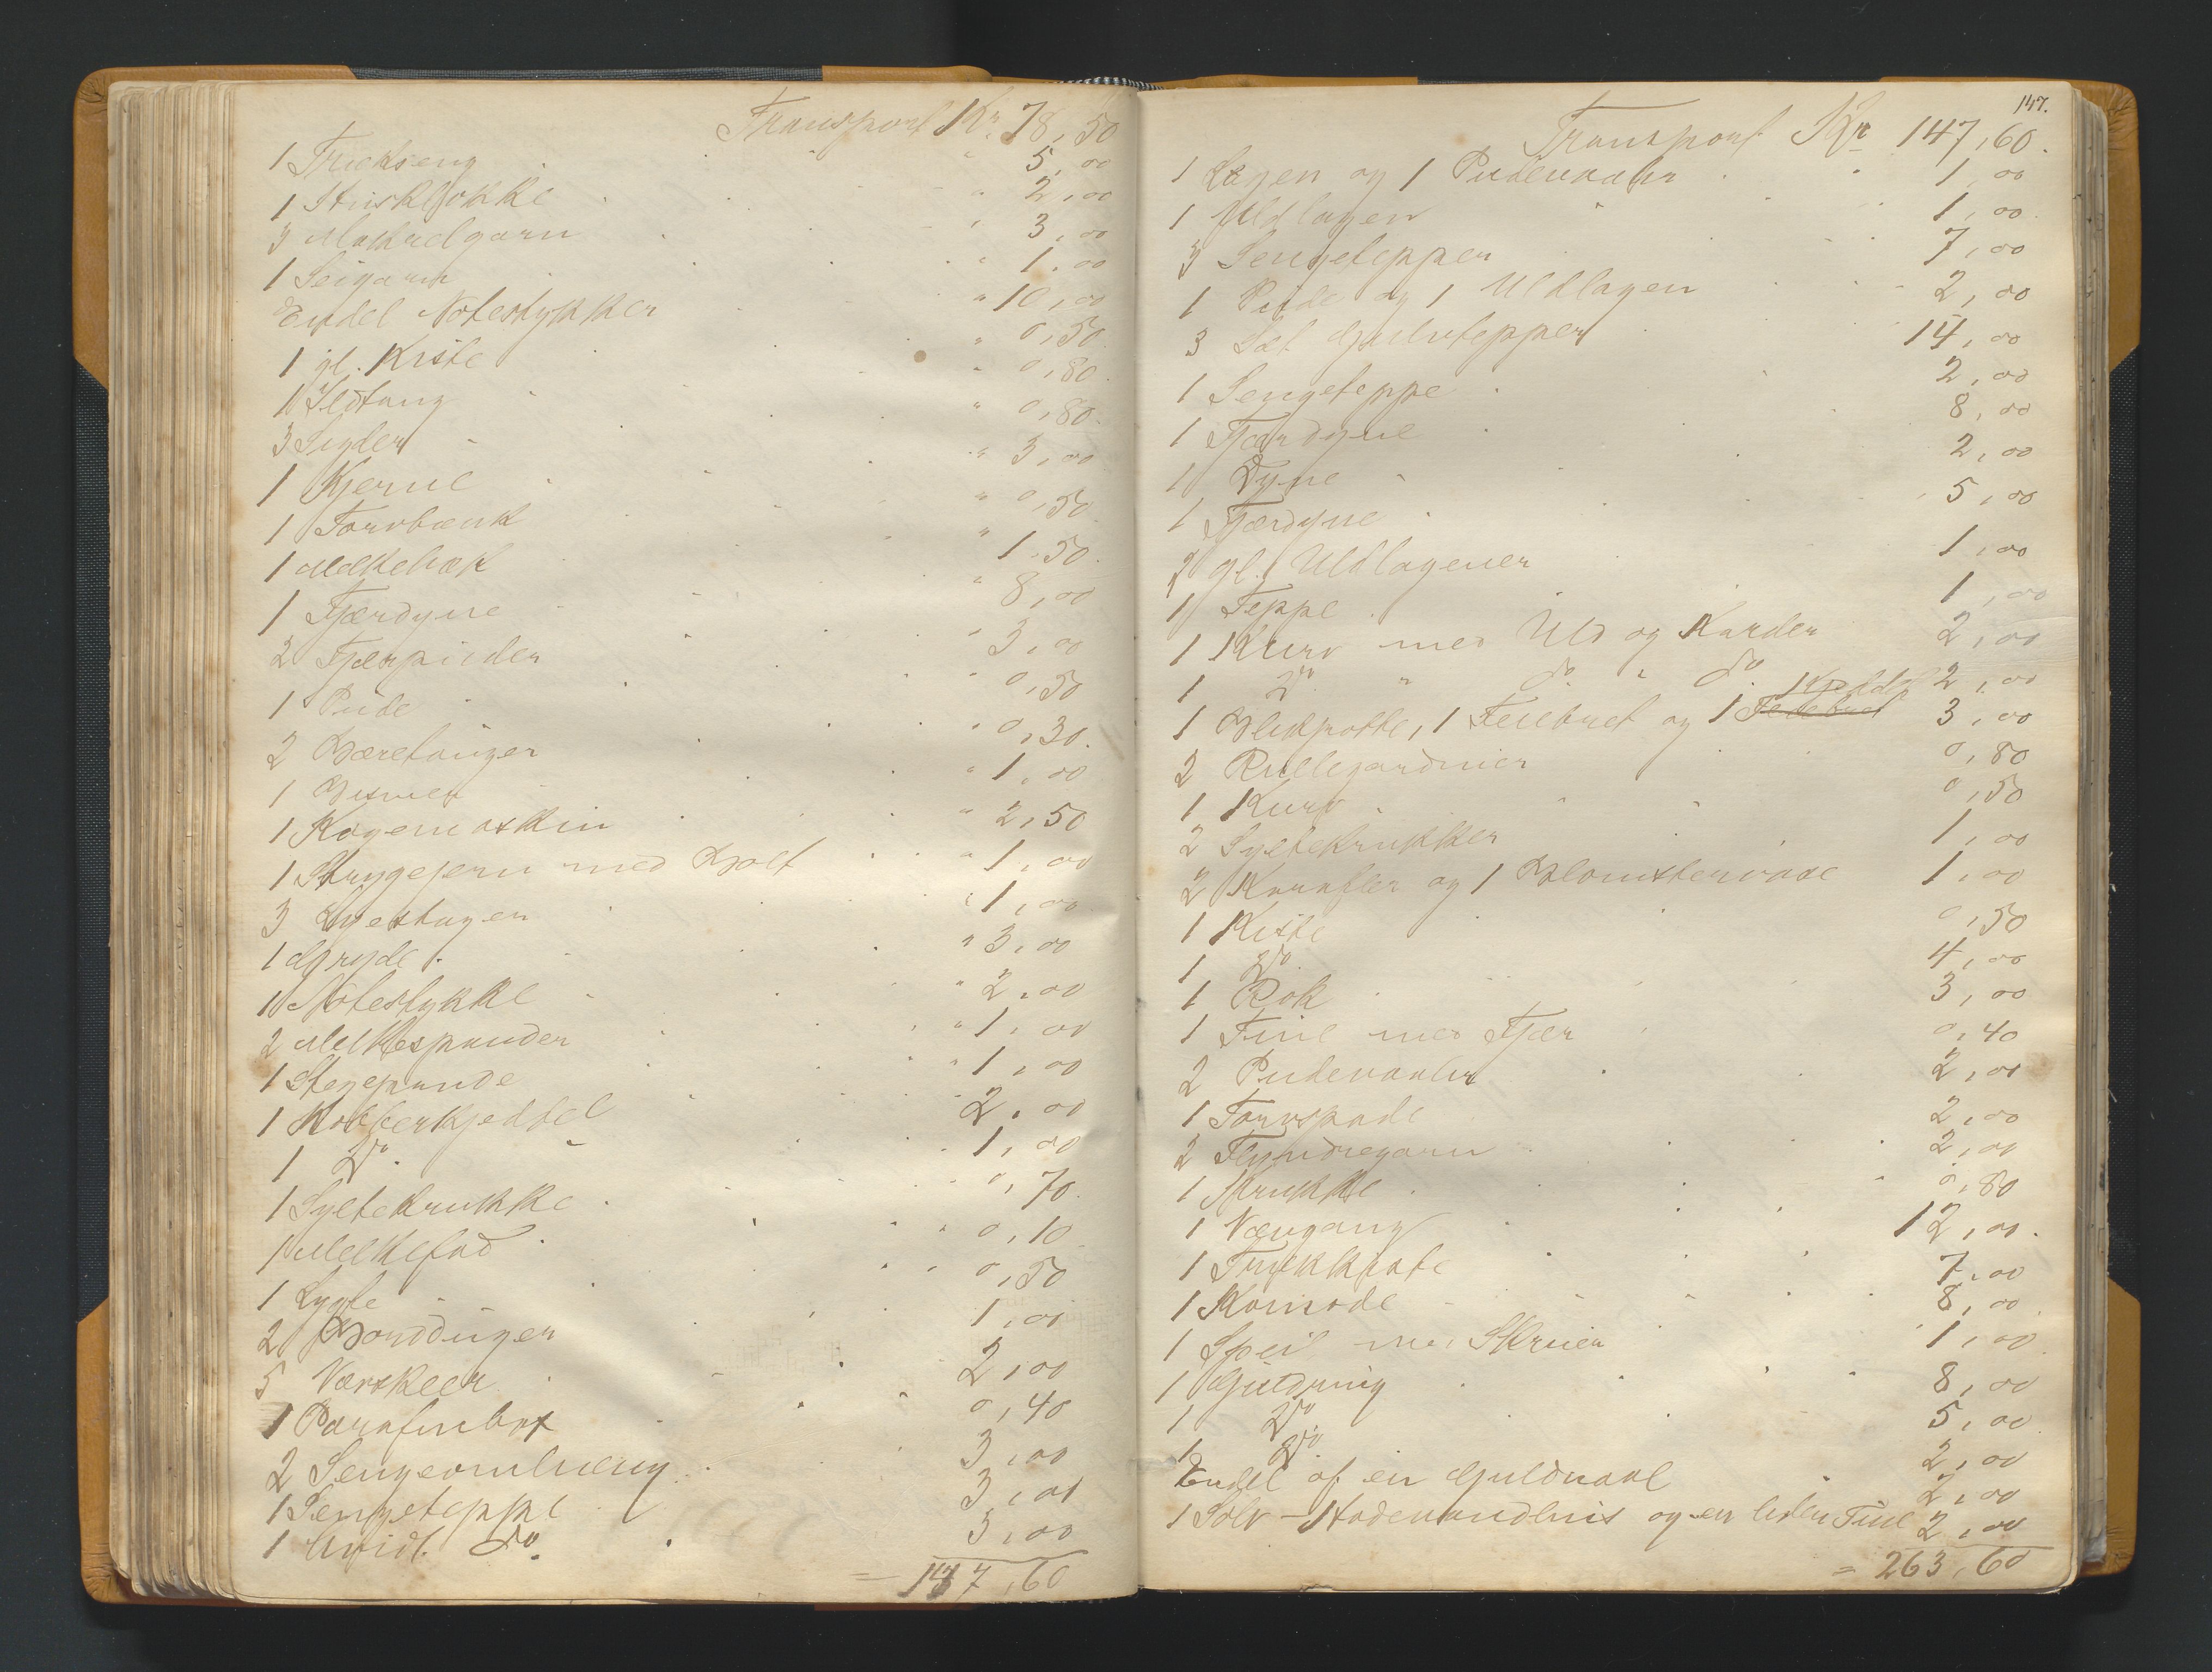 Transport Kr. 78,50
1 Trækseng " 5,00
1 Huskløkke " 2,00
3 Makrelgarn " 3,00
1 Seigarn " 1,00
Endel Notestykker " 10,00
1 gl. Kiste " 0,50
1 Ildtang " 0,80
3 Sigder " 0,80
1 Kjerne " 3,00
1 Torvbænk " 0,50
1 Melkehæk " 1,50
1 Fjærdyne " 8,00
2 Fjærpuder " 3,00
1 Pude " 0,50
2 Bæretøuger " 0,30
1 Bismer " 1,00
1 Kogemaskin " 2,50
1 Strygejern med Bolt " 1,00
3 Lysestager " 1,00
1 Gryde " 3,00
1 Notestykke " 2,00
2 Melkespander " 1,00
1 Stegepande " 1,00
1 Kobberkjeddel 2,00
1 Do 1,00
1 Syltekrukke 0,70
1 Melkefad 0,10
1 Lygte 0,50
2 Bordduger 1,00
5 Værskeer 2,00
1 Parafinbox 0,40
2 Sengeomhæng 3,00
1 Sengeteppe 3,00
1 hvidt do 3,00
= 147,60
147.
Transport Kr 147,60
1 Lagen og 1 Pudevaar 1,00
1 Uldlagen 1,00
3 Sengetepper 7,00
1 Pude og 1 Uldlagen 2,00
3 Sæt Gulvtepper 14,00
1 Sengeteppe 2,00
1 Fjærdyne 8,00
1 Dyne 2,00
1 Fjærdyne 5,00
2 gl. Uldlagener 1,00
1 Teppe 1,00
1 Kurv med Uld og Karder 2,00
1 Do " do " do 2,00
1 Blikpotte, 1 Feiebret og 1 Feiebret Kjeddel 3,00
2 Rullegardiner 0,80
1 Kurv 0,50
2 Syltekrukker 1,00
2 Karafler og 1 Blomstervase 1,00
1 Kiste 0,50
1 Do 4,00
1 Rok 3,00
1 Tine med Fjær 0,40
2 Pudevaar 2,00
1 Torvspade 2,00
2 Flyndregarn 2,00
1 Krukke 0,80
1 Vævgang 12,00
1 Trækkiste 7,00
1 Komode 8,00
1 Speil med Skruer 1,00
1 Guldring 8,00
1 Do 5,00
1 Do 2,00
Endel af en Guldnaal 2,00
1 Sølv-Hodevandhus og en liden Tine 2,00
= 263,60